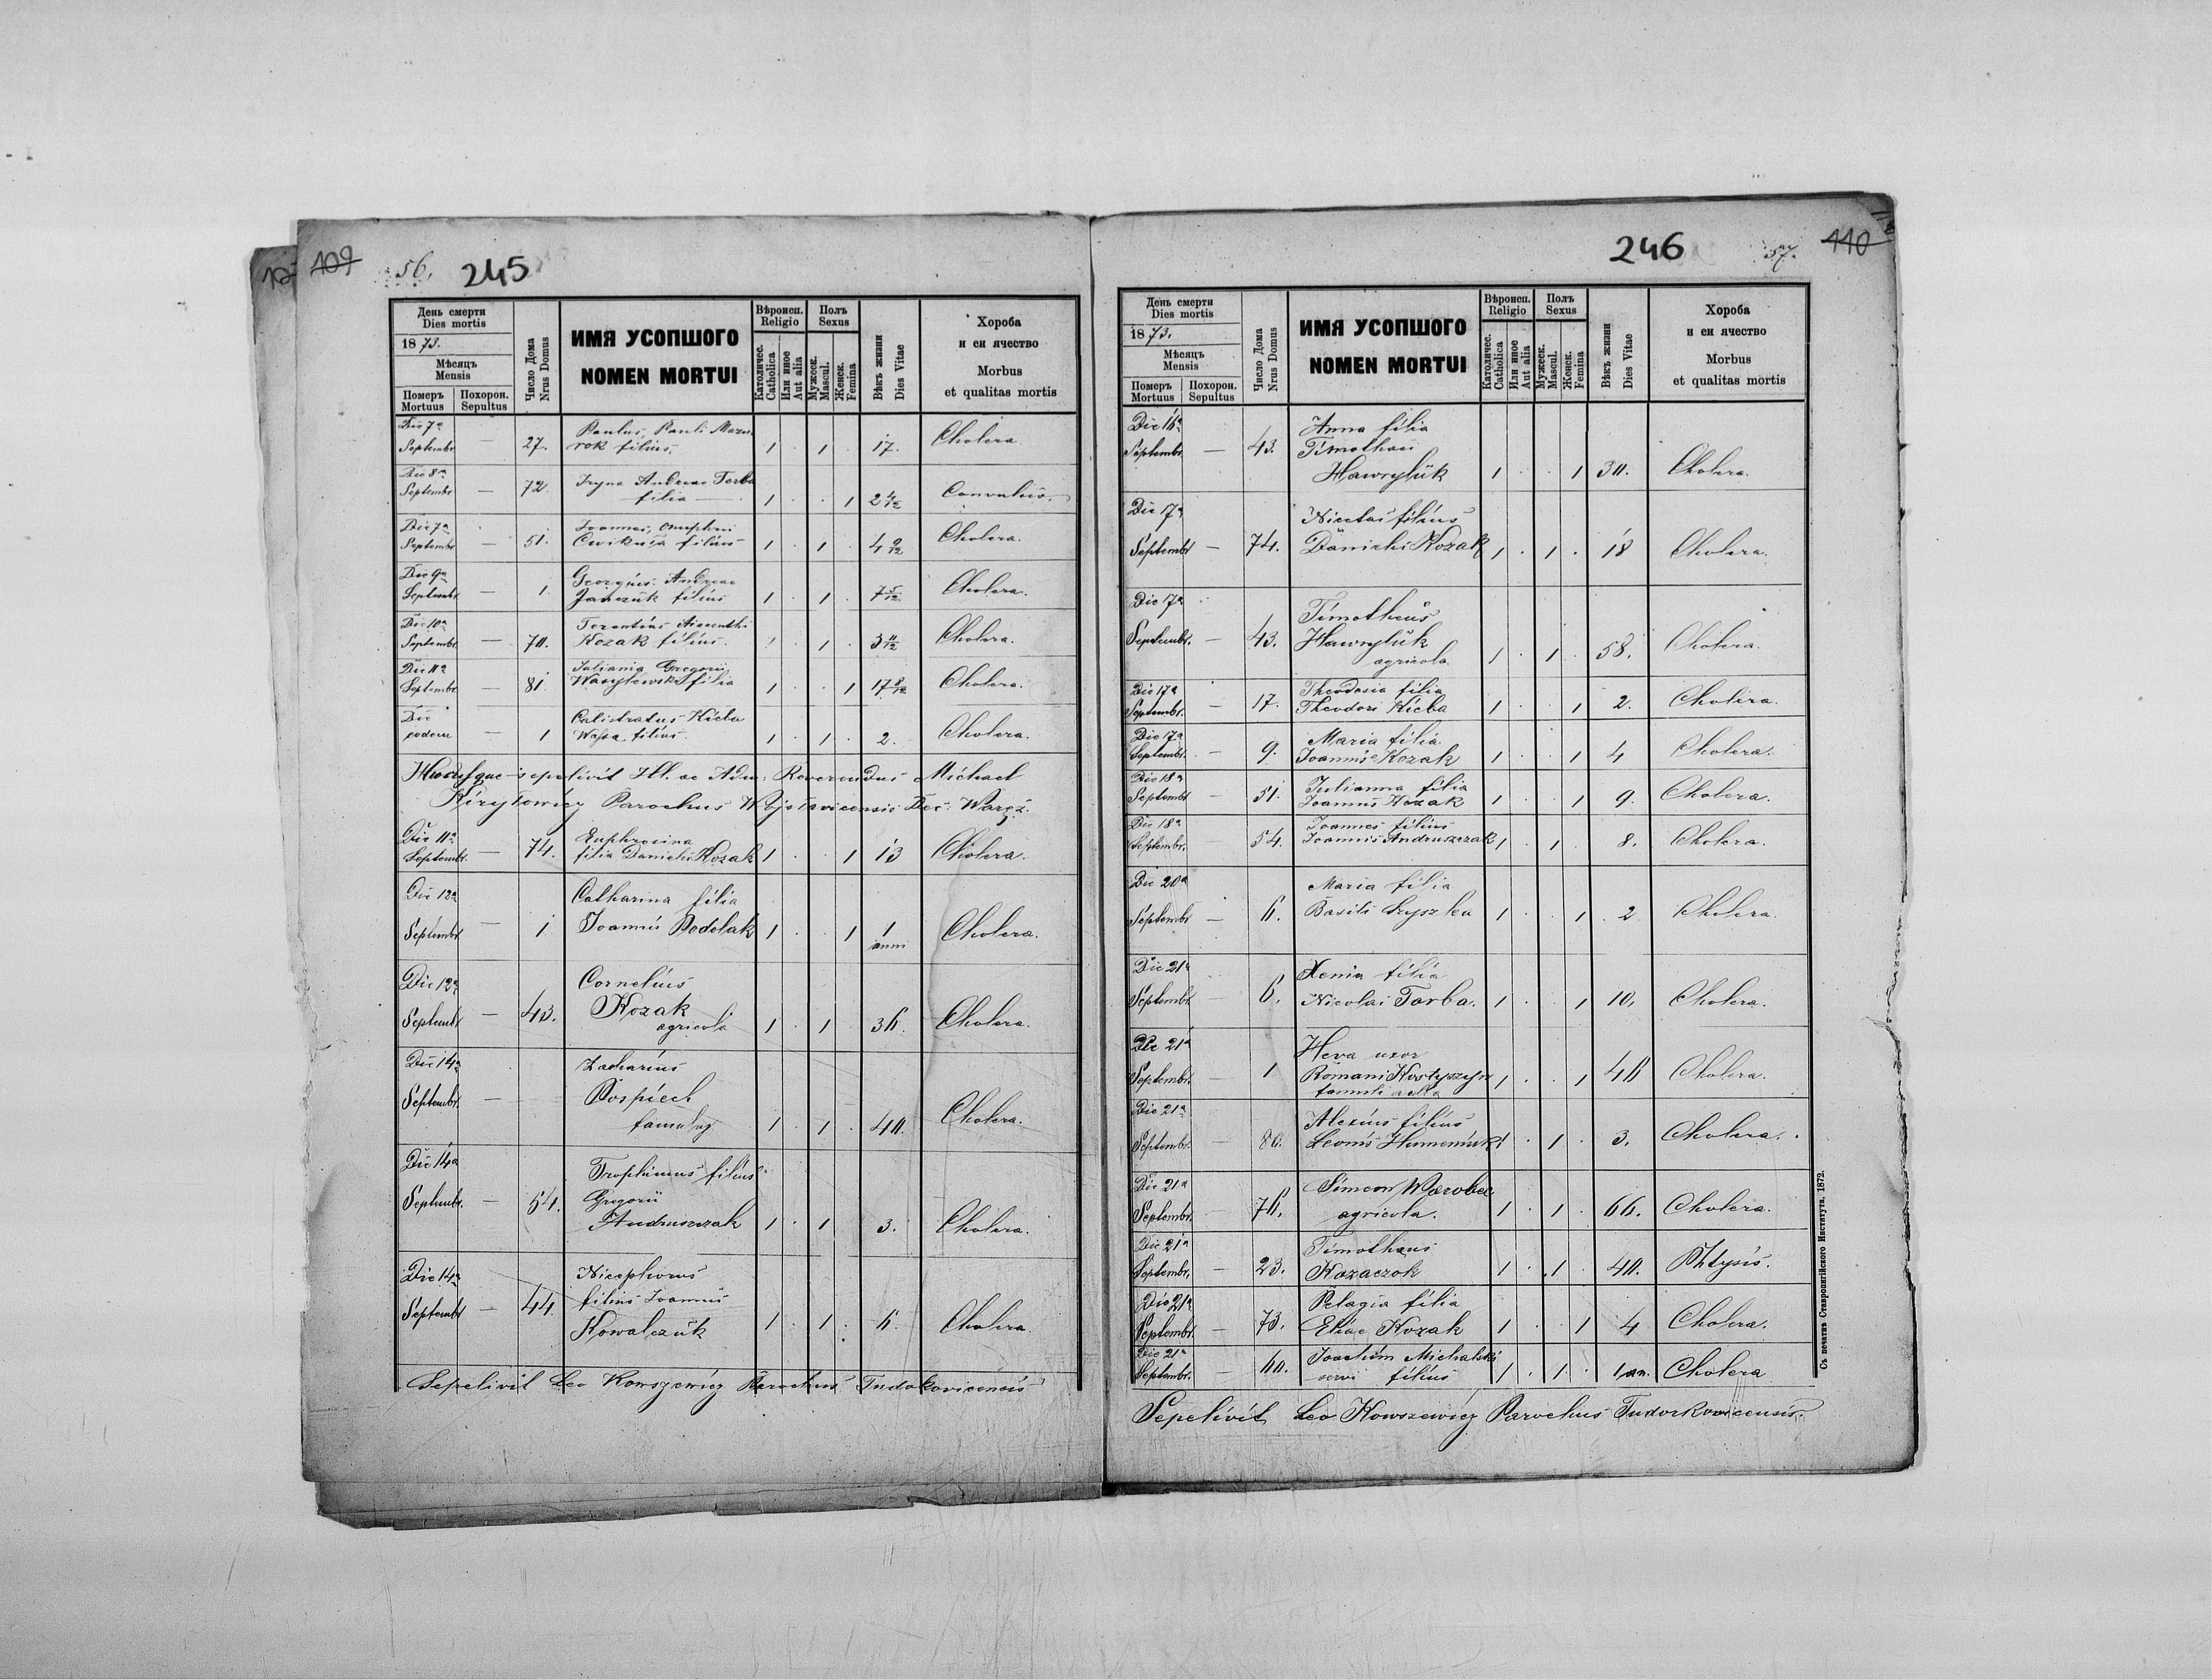 109 56. 245
День смерти
Dies mortis
1873.
Мѣсяцъ
Mensis
Померъ
Mortuus
Похорон.
Sepultus
Число Дома
Nrus Domus
ИМЯ УСОПШОГО
NOMEN MORTUI
Вѣроисп.
Religio
Католичес.
Catholica
Или иное
Aut alia
Полъ
Sexus
Мужеск.
Mascul.
Женск.
Femina
Вѣкъ жизни
Dies Vitae
Хороба
и еи ячество
Morbus
et qualitas mortis
Die 7a Paulus, Pauli Mazu-
Septembr. — 27. rok filius. 1 . 1 . 17. Cholera.
Die 8a
Septembr. — 72. Andreae Torba
filia 1 . . 1 2 4/12 Convulsio.
Die 7a Joannes, Onuphrii
Septembr. — 51. filius 1 . 1 . 4 9/12 Cholera.
Die 9a Georgius. Andreae
Septembr. — 1. Janczuk filius 1 . 1 . 7 5/12 Cholera.
Die 10a Terentius Hiacenthi
Septembr. — 70. Kozak filius. 1 . 1 . 3 11/12 Cholera.
Die 11a Juliania Gregorii
Septembr. — 81 Wasylewski filia 1 . . 1 17 8/12 Cholera.
Die Calistratus Kicba
eodem — 1 filius. 1 . 1 . 2. Cholera.
Hucusque sepelivit Ill. ac Adm. Reverendus Michael
Kiryłowicz Parochus Wojsławicensis Dec: Waręż.
Die 11a Euphrosina
Septembr. — 74. filia Danielis Kozak 1 . . 1 13 Cholera.
Die 12a Catharina filia
Septembr. — 1 Joannis Podolak 1 . . 1 1 Cholera.
anni
Die 12a Cornelius
Septembr. — 43. Kozak
agricola 1 . 1 . 36. Cholera.
Die 14a Zacharius
Septembr. — Pospiech
famulus 1 . 1 . 40. Cholera.
Die 14a Trophimus filius
Septembr. — 54. Gregorii
Andruszczak 1 . 1 . 3. Cholera.
Die 14a Nicephorus
Septembr. — 44. filius Joannis
Kowalczuk 1 . 1 . 6. Cholera.
Sepelivit Leo Kowszewicz Parochus Tudorkovicensis
246 57. 110
День смерти
Dies mortis
1873.
Мѣсяцъ
Mensis
Померъ
Mortuus
Похорон.
Sepultus
Число Дома
Nrus Domus
ИМЯ УСОПШОГО
NOMEN MORTUI
Вѣроисп.
Religio
Католичес.
Catholica
Или иное
Aut alia
Полъ
Sexus
Мужеск.
Mascul.
Женск.
Femina
Вѣкъ жизни
Dies Vitae
Хороба
и еи ячество
Morbus
et qualitas mortis
Die 16a Anna filia
Septembr. — 43. Timothaei
Hawryluk 1 . . 1 30. Cholera.
Die 17a Nicetas filius
Septembr. — 74. Danielis Kozak 1 . 1 . 18 Cholera.
Die 17a Timotheus
Septembr. — 43. Hawryluk
agricola 1 . 1 . 58. Cholera.
Die 17a Theodosia filia
Septembr. — 17. Theodori Kicba 1 . . 1 2. Cholera.
Die 17a Maria filia
Septembr. — 9. Joannis Kozak 1 . . 1 4 Cholera.
Die 18a Julianna filia
Septembr. — 51. Joannis Kozak 1 . . 1 9. Cholera.
Die 18a Joannes filius
Septembr. — 54. Joannis Andruszczak 1 . 1 . 8. Cholera.
Die 20a Maria filia
Septembr. — 6. Basili Szyszka 1 . . 1 2 Cholera.
Die 21a Xenia filia
Septembr. — 6. Nicolai Torba. 1 . . 1 10. Cholera.
Die 21a Heva uxor
Septembr. — 1 Romani Kostyszyn 1 . . 1 46 Cholera.
Die 21a Alexius filius
Septembr. — 80. Leonis Humeniuk 1 . 1 . 3. Cholera.
Die 21a Simeon Worobec
Septembr. — 76. agricola. 1 . 1 . 66. Cholera.
Die 21a Timothaeus
Septembr. — 23. Kozaczok 1 . 1 . 40. Phtysis.
Die 21a Pelagia filia
Septembr. — 73. Eliae Kozak 1 . . 1 4 Cholera.
Die 21a Joachim Michalski
Septembr. — 60. servi filius 1 . 1 . 1 an. Cholera
Sepelivit Leo Kowszewicz Parochus Tudorkowicensis.
Съ печатнѣ Ставропигійского Института. 1872.